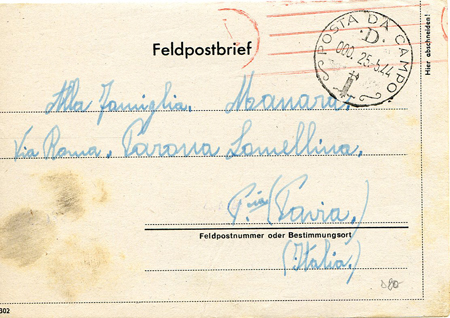 Feldpostbrief
POSTA DA CAMPO
·D·
000. 25.6.44
Hier abschneiden!
Alla Famiglia. Manara.
Via Roma. Parona Lomellina.
P.cia (Pavia.)
Feldpostnummer oder Bestimmungsort
(Italia.)
302